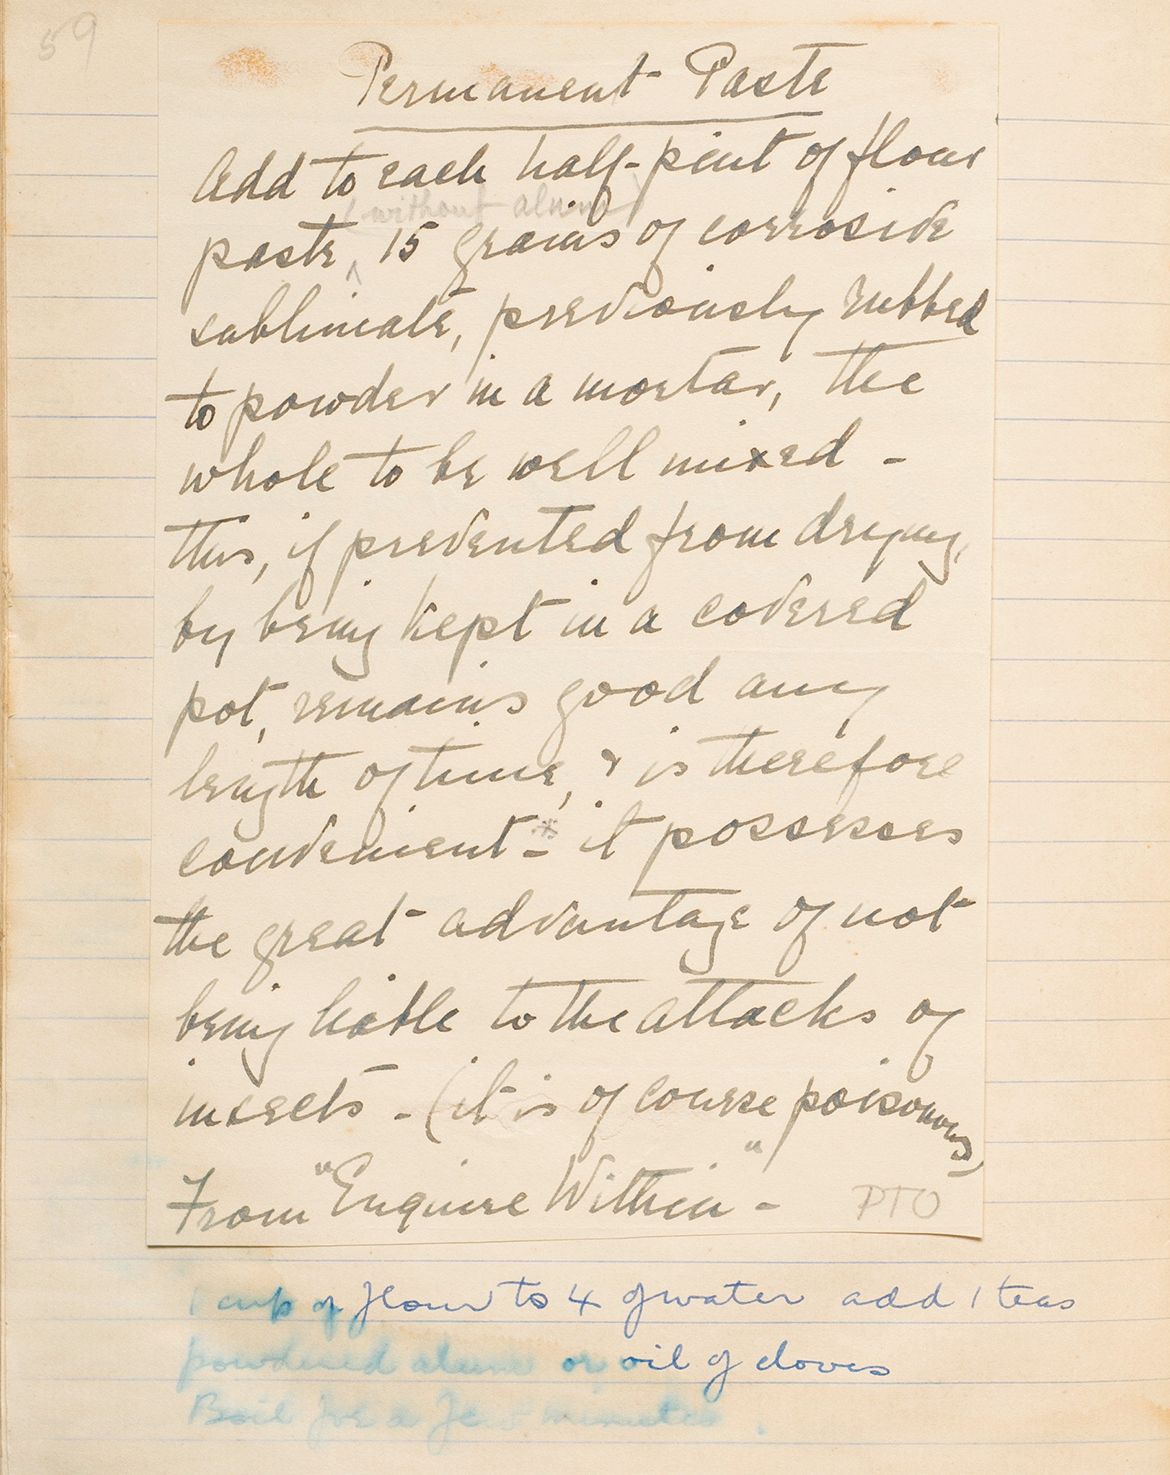 59
Permanent Paste
Add to each half-pint of flour
(without alum)
paste, ^ 15 grains of corrosive
sublimate, previously rubbed
to powder in a mortar, the
whole to be well mixed -
this, if prevented from drying,
by being kept in a covered
pot, remains good any
length of time, & is therefore
convenient - * it possesses
the great advantage of not
being liable to the attacks of
insects - (it is of course poisonous)
From "Enquire Within" -
PTO
1 cup of flour to 4 of water add 1 teas
powdered alum or oil of cloves
Boil for a few minutes.